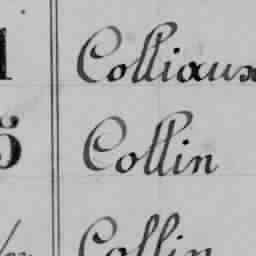 1 Colliaux
5 Collin
Collin